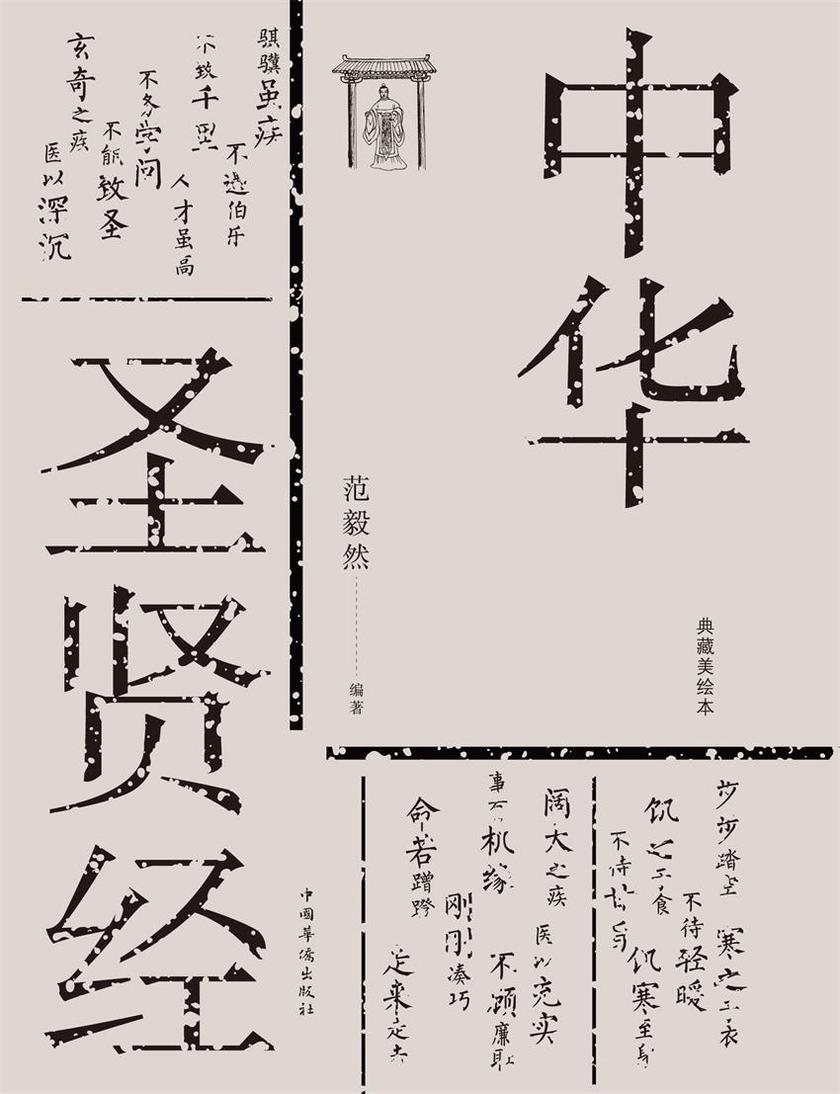 中华
圣贤经
典藏美绘本
范毅然
编著
骐骥虽疾
不遇伯乐
不致千里
人才虽高
不务学问
不能致圣
玄奇之疾
医以深沉
步步踏空
寒之于衣
不待轻暖
饥之于食
饥寒至身
不待
阔大之疾
医以充实
事有机缘
不顾廉耻
刚刚凑巧
命若蹭蹬
走来走去
中國華僑出版社